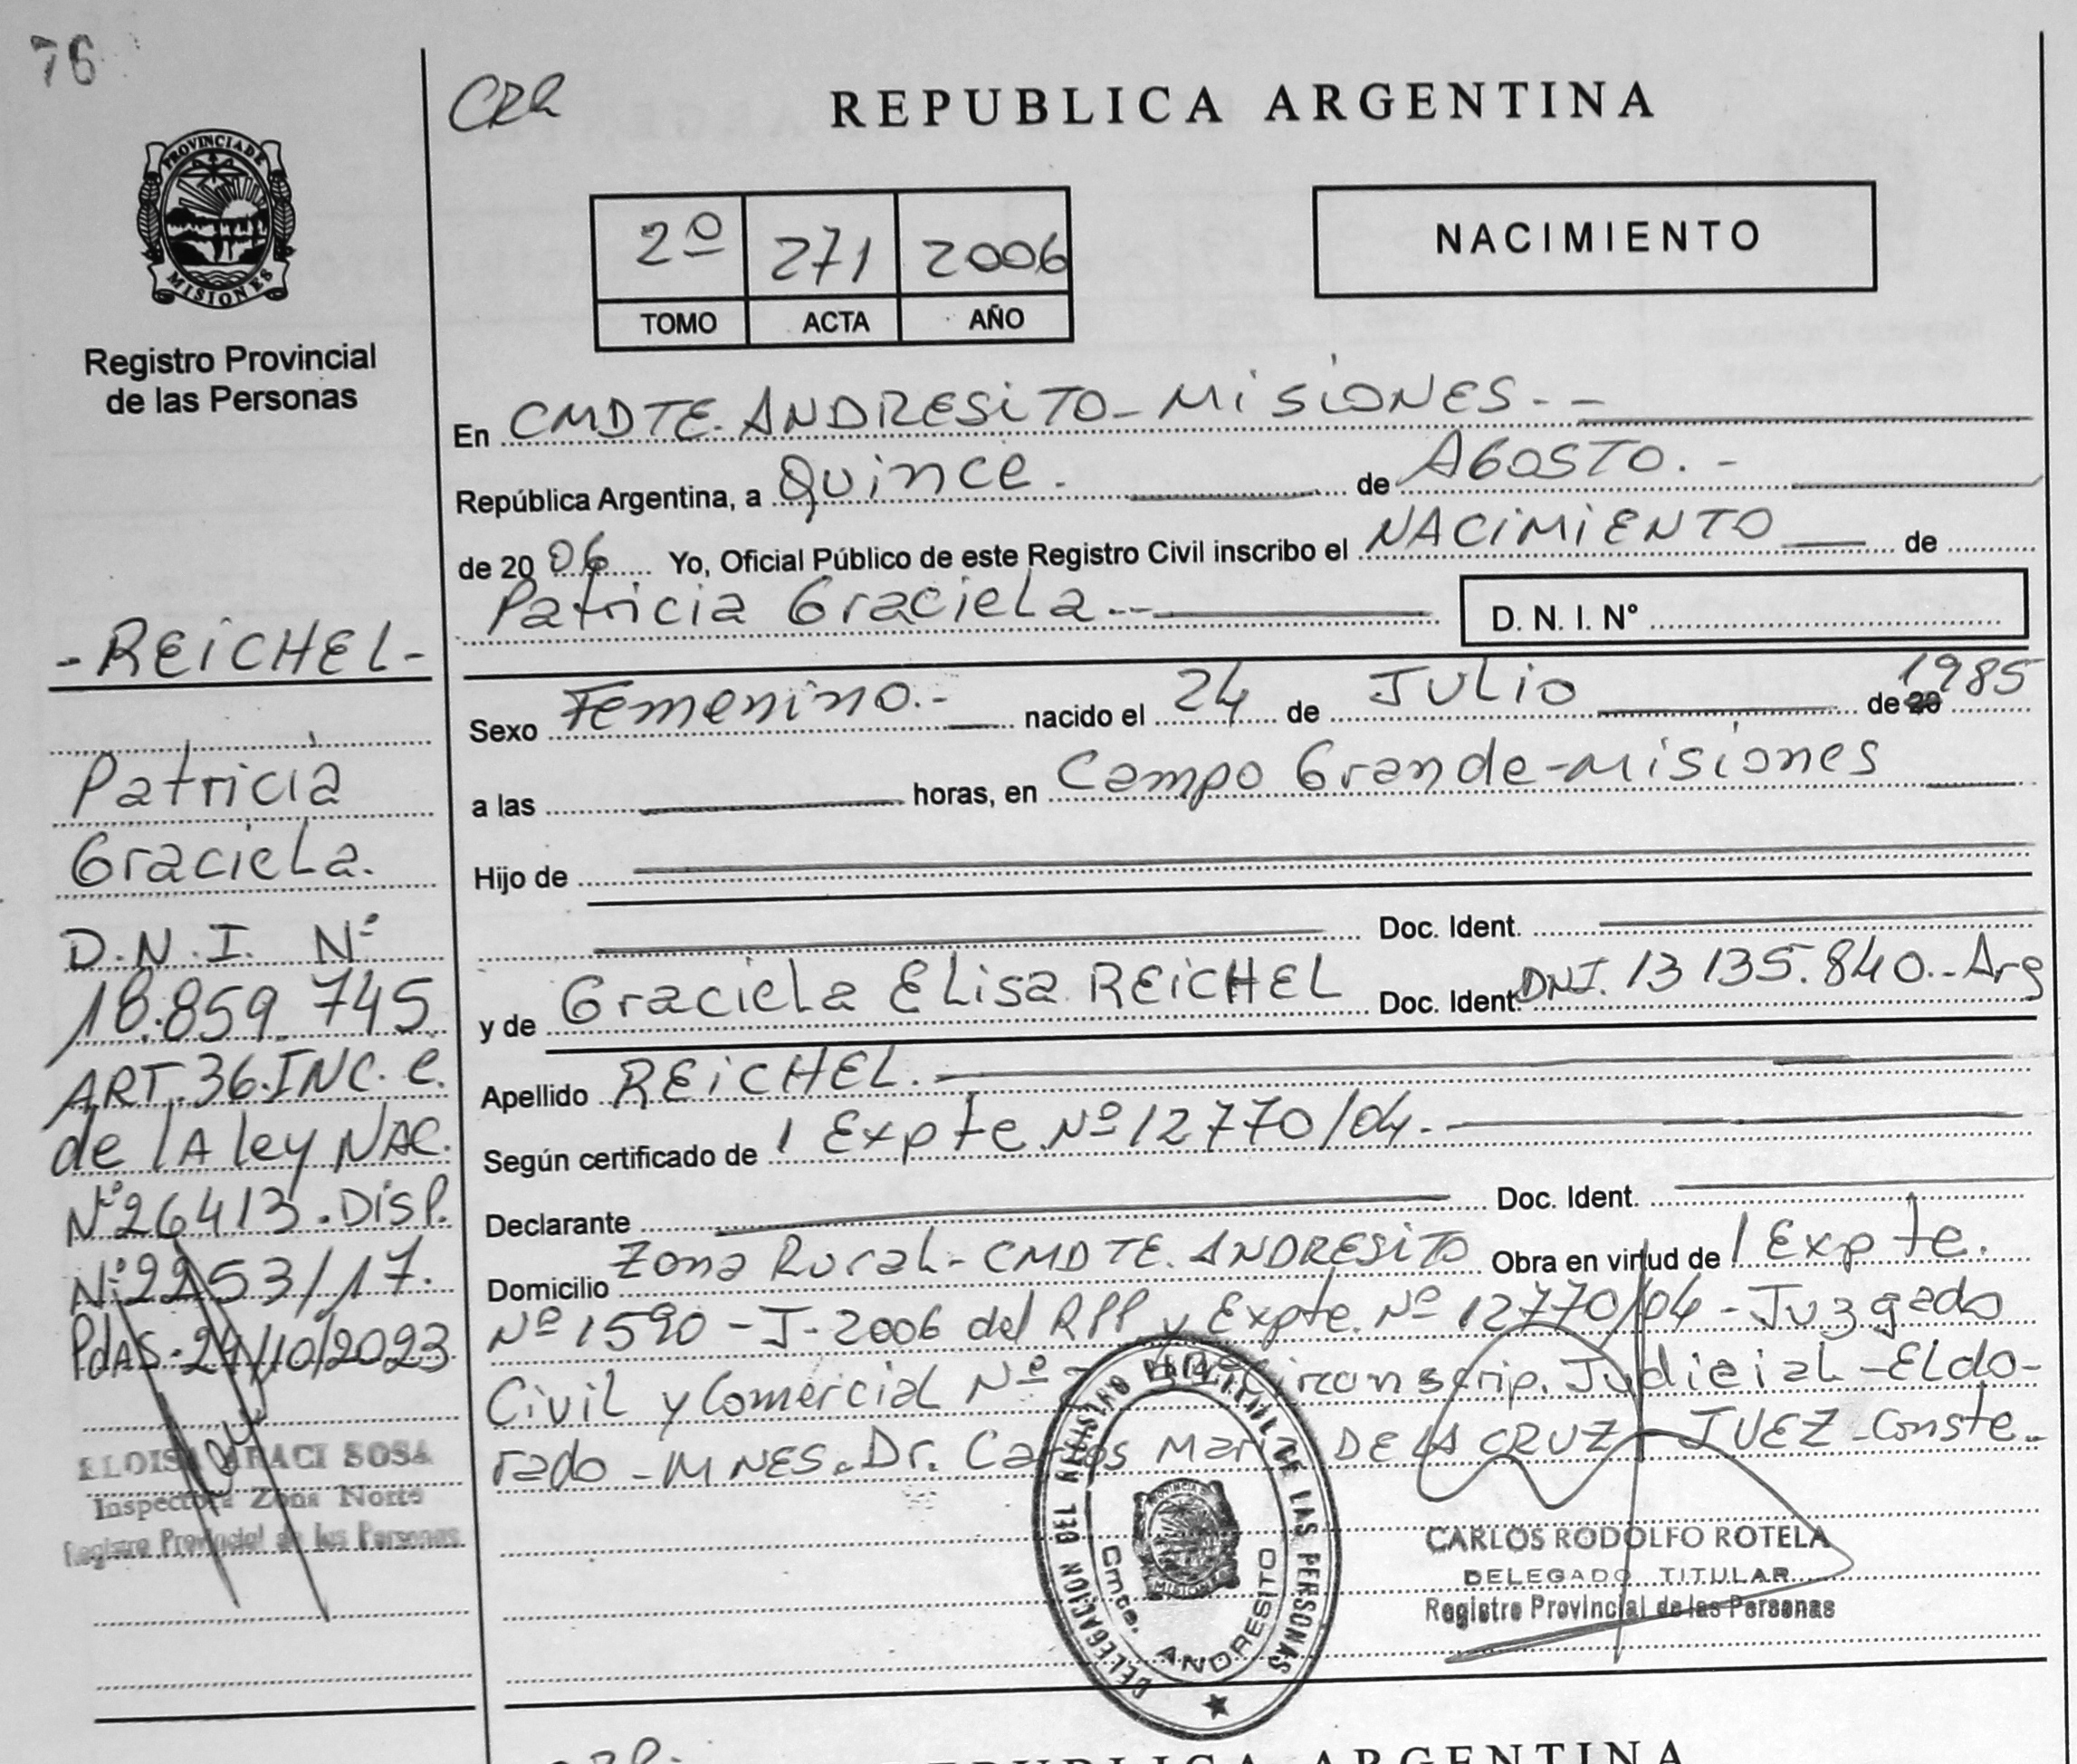 76
PROVINCIA DE
MISIONES
Registro Provincial
de las Personas
-REICHEL-
Patricia
Graciela.
D.N.I. Nº
18.859.745
ART.36.INC.e.
de lA ley NAC.
Nº26413.DISP.
Nº2253/17.
PdAS-24/10/2023
ELOISA ARACI SOSA
Inspectora Zona Norte
Registro Provincial de las Personas
REPUBLICA ARGENTINA
2º 271 2006
TOMO ACTA AÑO
NACIMIENTO
En CMDTE. ANDRESITO-MISIONES.-
República Argentina, a Quince. de AGOSTO.-
de 20 06 Yo, Oficial Público de este Registro Civil inscribo el NACIMIENTO de
Patricia Graciela.-- D. N. I. Nº
Sexo Femenino.- nacido el 24 de JULIO de 20 1985
a las horas, en Campo Grande-Misiones
Hijo de
Doc. Ident.
y de Graciela ELisa REICHEL Doc. Ident. DNI. 13 135.840.-Arg
Apellido REICHEL.
Según certificado de / Expte Nº 12770/04.
Declarante Doc. Ident.
Domicilio Zona Rural-CMDTE. ANDRESITO Obra en virtud de / Expte.
Nº 1590-J-2006 del RPP y Expte. Nº 12770/04-Juzgado
Civil y Comercial Nº Circunscrip. Judicial-ELdo-
rado-MNES. Dr. Carlos Maria DE LA CRUZ JUEZ-Conste.-
DELEGACION DEL REGISTRO PROVINCIAL DE LAS PERSONAS
Cmte. ANDRESITO
PROVINCIA DE
MISIONES
CARLOS RODOLFO ROTELA
DELEGADO TITULAR
Registro Provincial de las Personas
REPUBLICA ARGENTINA